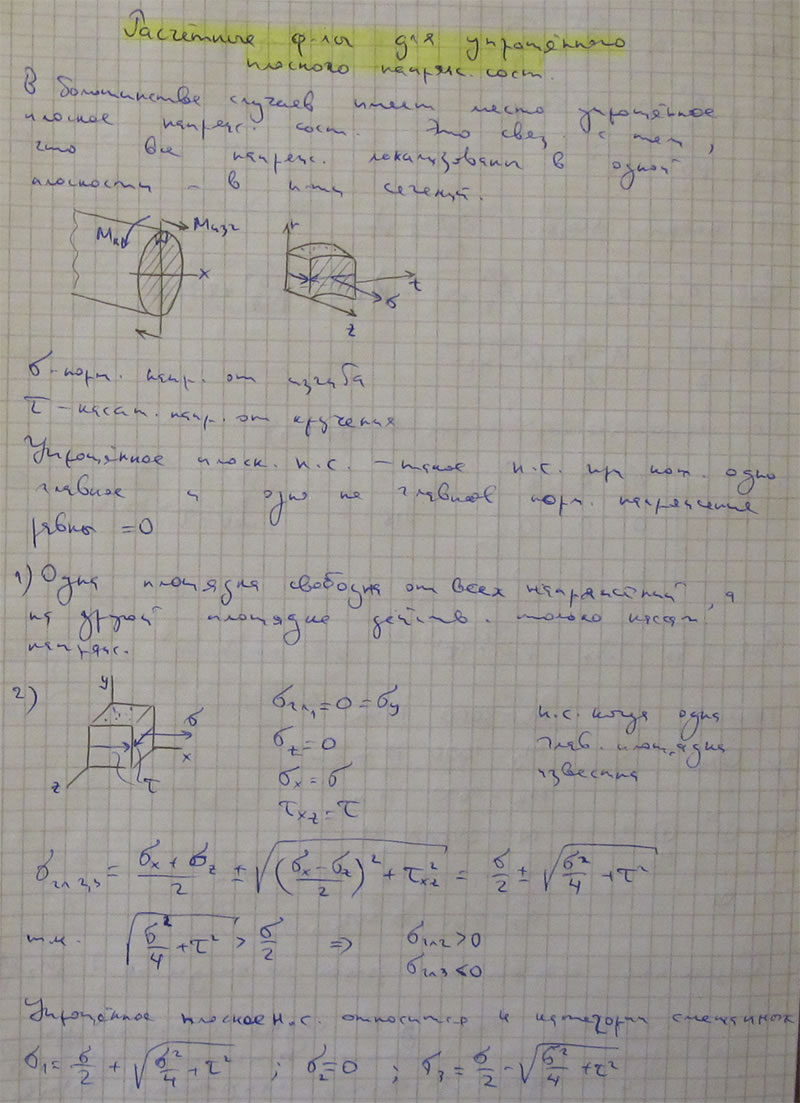 Расчётные ф-лы для упрощённого
плоского напряж. сост.
В большинстве случаев имеет место упрощённое
плоское напряж. сост. Это связ. с тем,
что все напряж. локализованы в одной
плоскости – в пл-ти сечений.
Mк Mизг
x
r
t
σ
z
σ – норм. напр. от изгиба
τ – касат. напр. от кручения
Упрощённое плоск. н.с. – такое н.с. при кот. одно
главное и одно не главное норм. напряжения
равны = 0
1) Одна площадка свободна от всех напряжений, а
на другой площадке действ. только касат.
напряж.
2)
y
σ
x
z
τ
σгл1 = 0 = σy
σz = 0
σx = σ
τxz = τ
н.с. когда одна
глав. площадка
известна
σгл 2,3 = (σx + σz)/2 ± √(((σx – σz)/2)² + τxz²) = σ/2 ± √(σ²/4 + τ²)
т.к. √(σ²/4 + τ²) > σ/2 ⇒ σгл2 > 0
σгл3 < 0
Упрощённое плоское н.с. относится к категории смешанных
σ1 = σ/2 + √(σ²/4 + τ²) ; σ2 = 0 ; σ3 = σ/2 – √(σ²/4 + τ²)